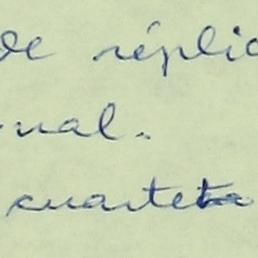 de réplic
nual.
cuarteta